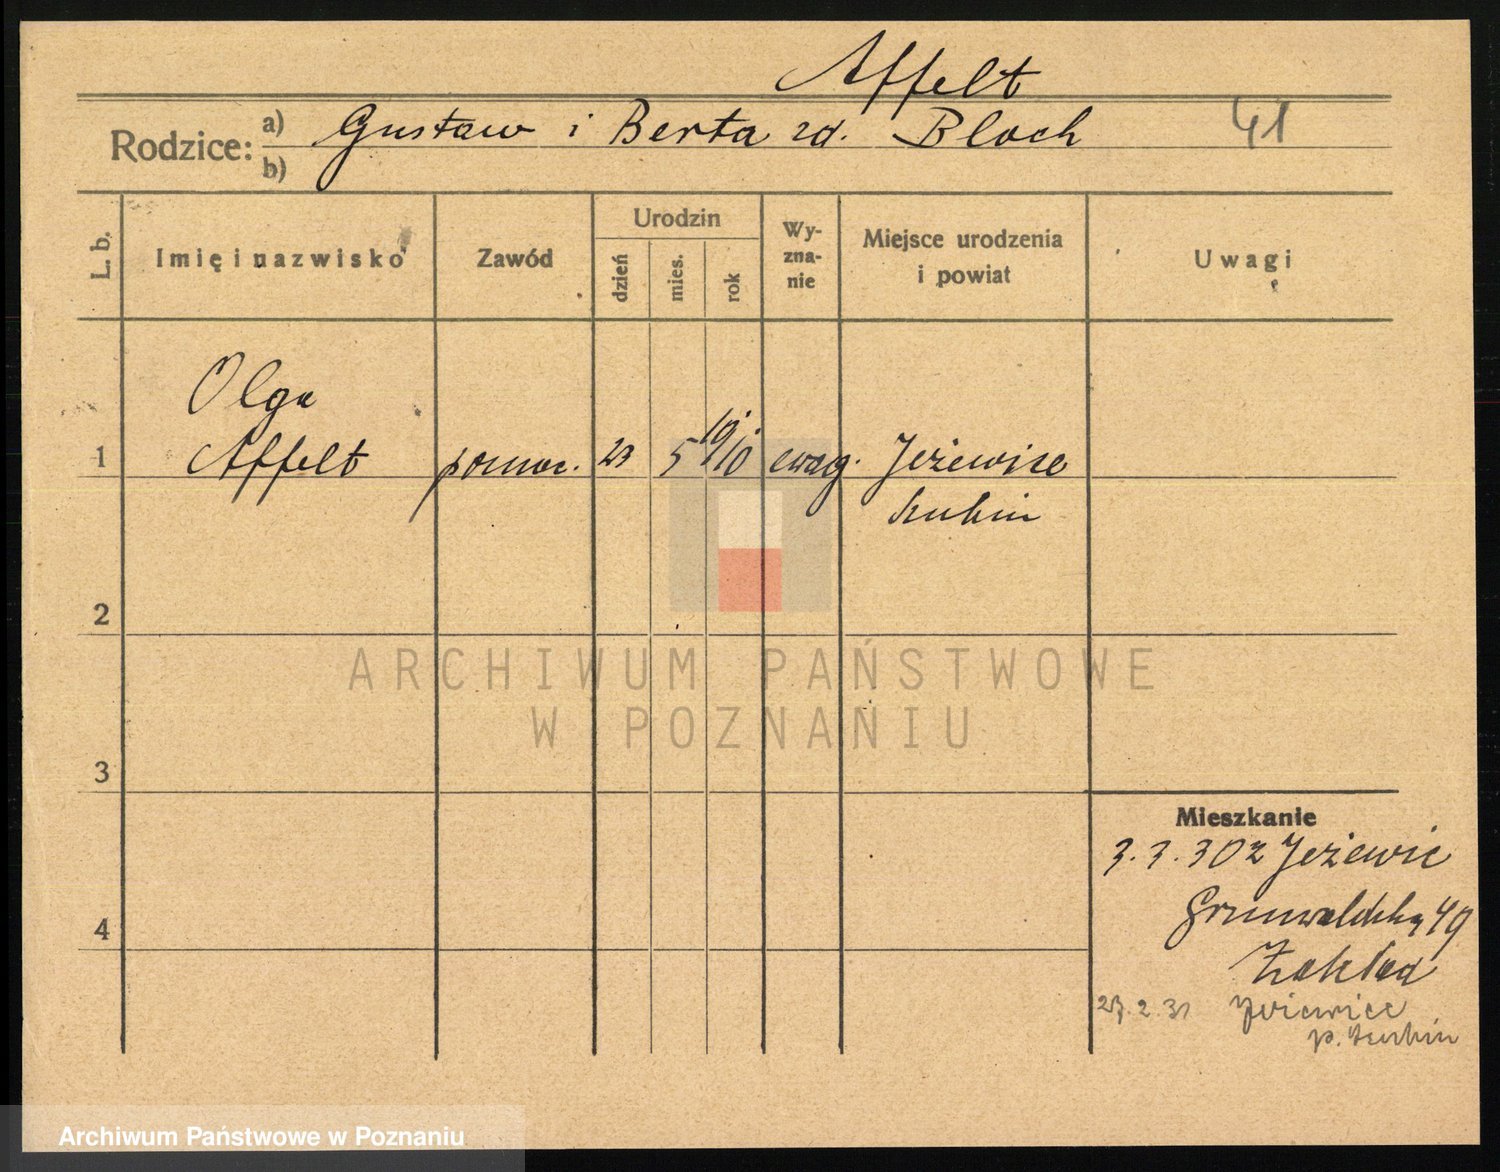 Affelt
Rodzice: a) Gustaw i Berta zd. Bloch 41
b)
L. b. Imię i nazwisko Zawód Urodzin dzień mies. rok Wy-zna-nie Miejsce urodzenia i powiat Uwagi
Olga
1 Affelt pomoc. 23 5 1910 ewag. Jeżewice
Szubin
2
ARCHIWUM PAŃSTWOWE
W POZNANIU
3
Mieszkanie
3.3.30 z Jeżewic
4 Grunwaldzka 49
Zakład
23.2.31 Jeżewice
p. Szubin
Archiwum Państwowe w Poznaniu